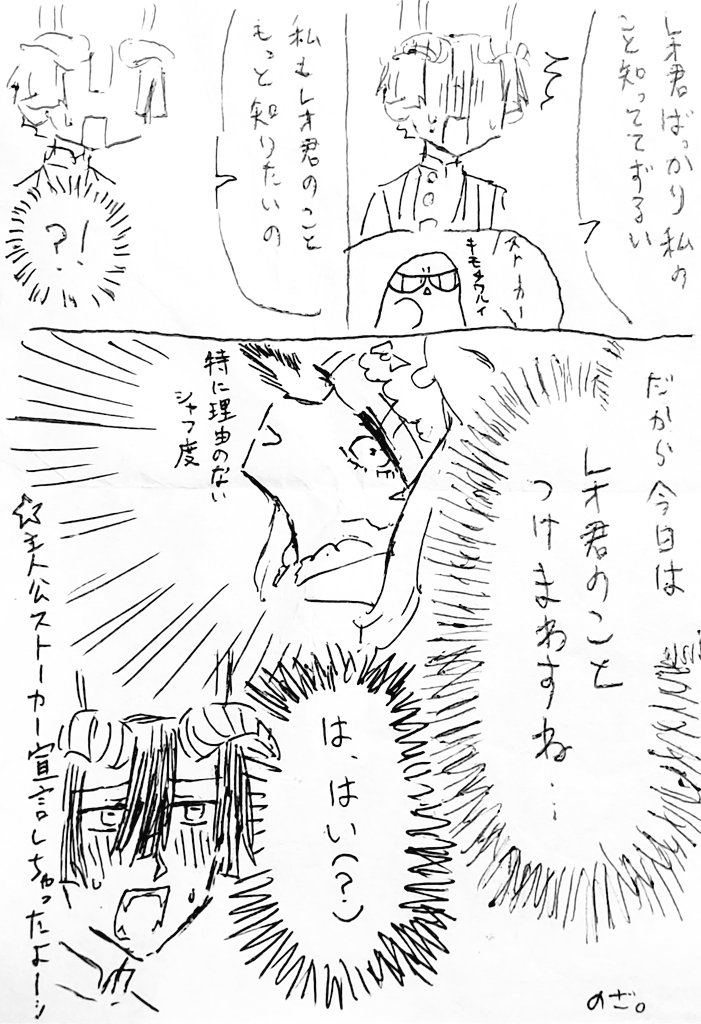 レオ君ばっかり私の
こと知っててずるい
ストーカー
キモチワルイ
私もレオ君のこと
もっと知りたいの
?!
だから今日は
レオ君のこと
つけまわすね…
特に理由のない
シャフ度
は、はい(?)
☆主人公ストーカー宣言しちゃったよーッ
のざ。